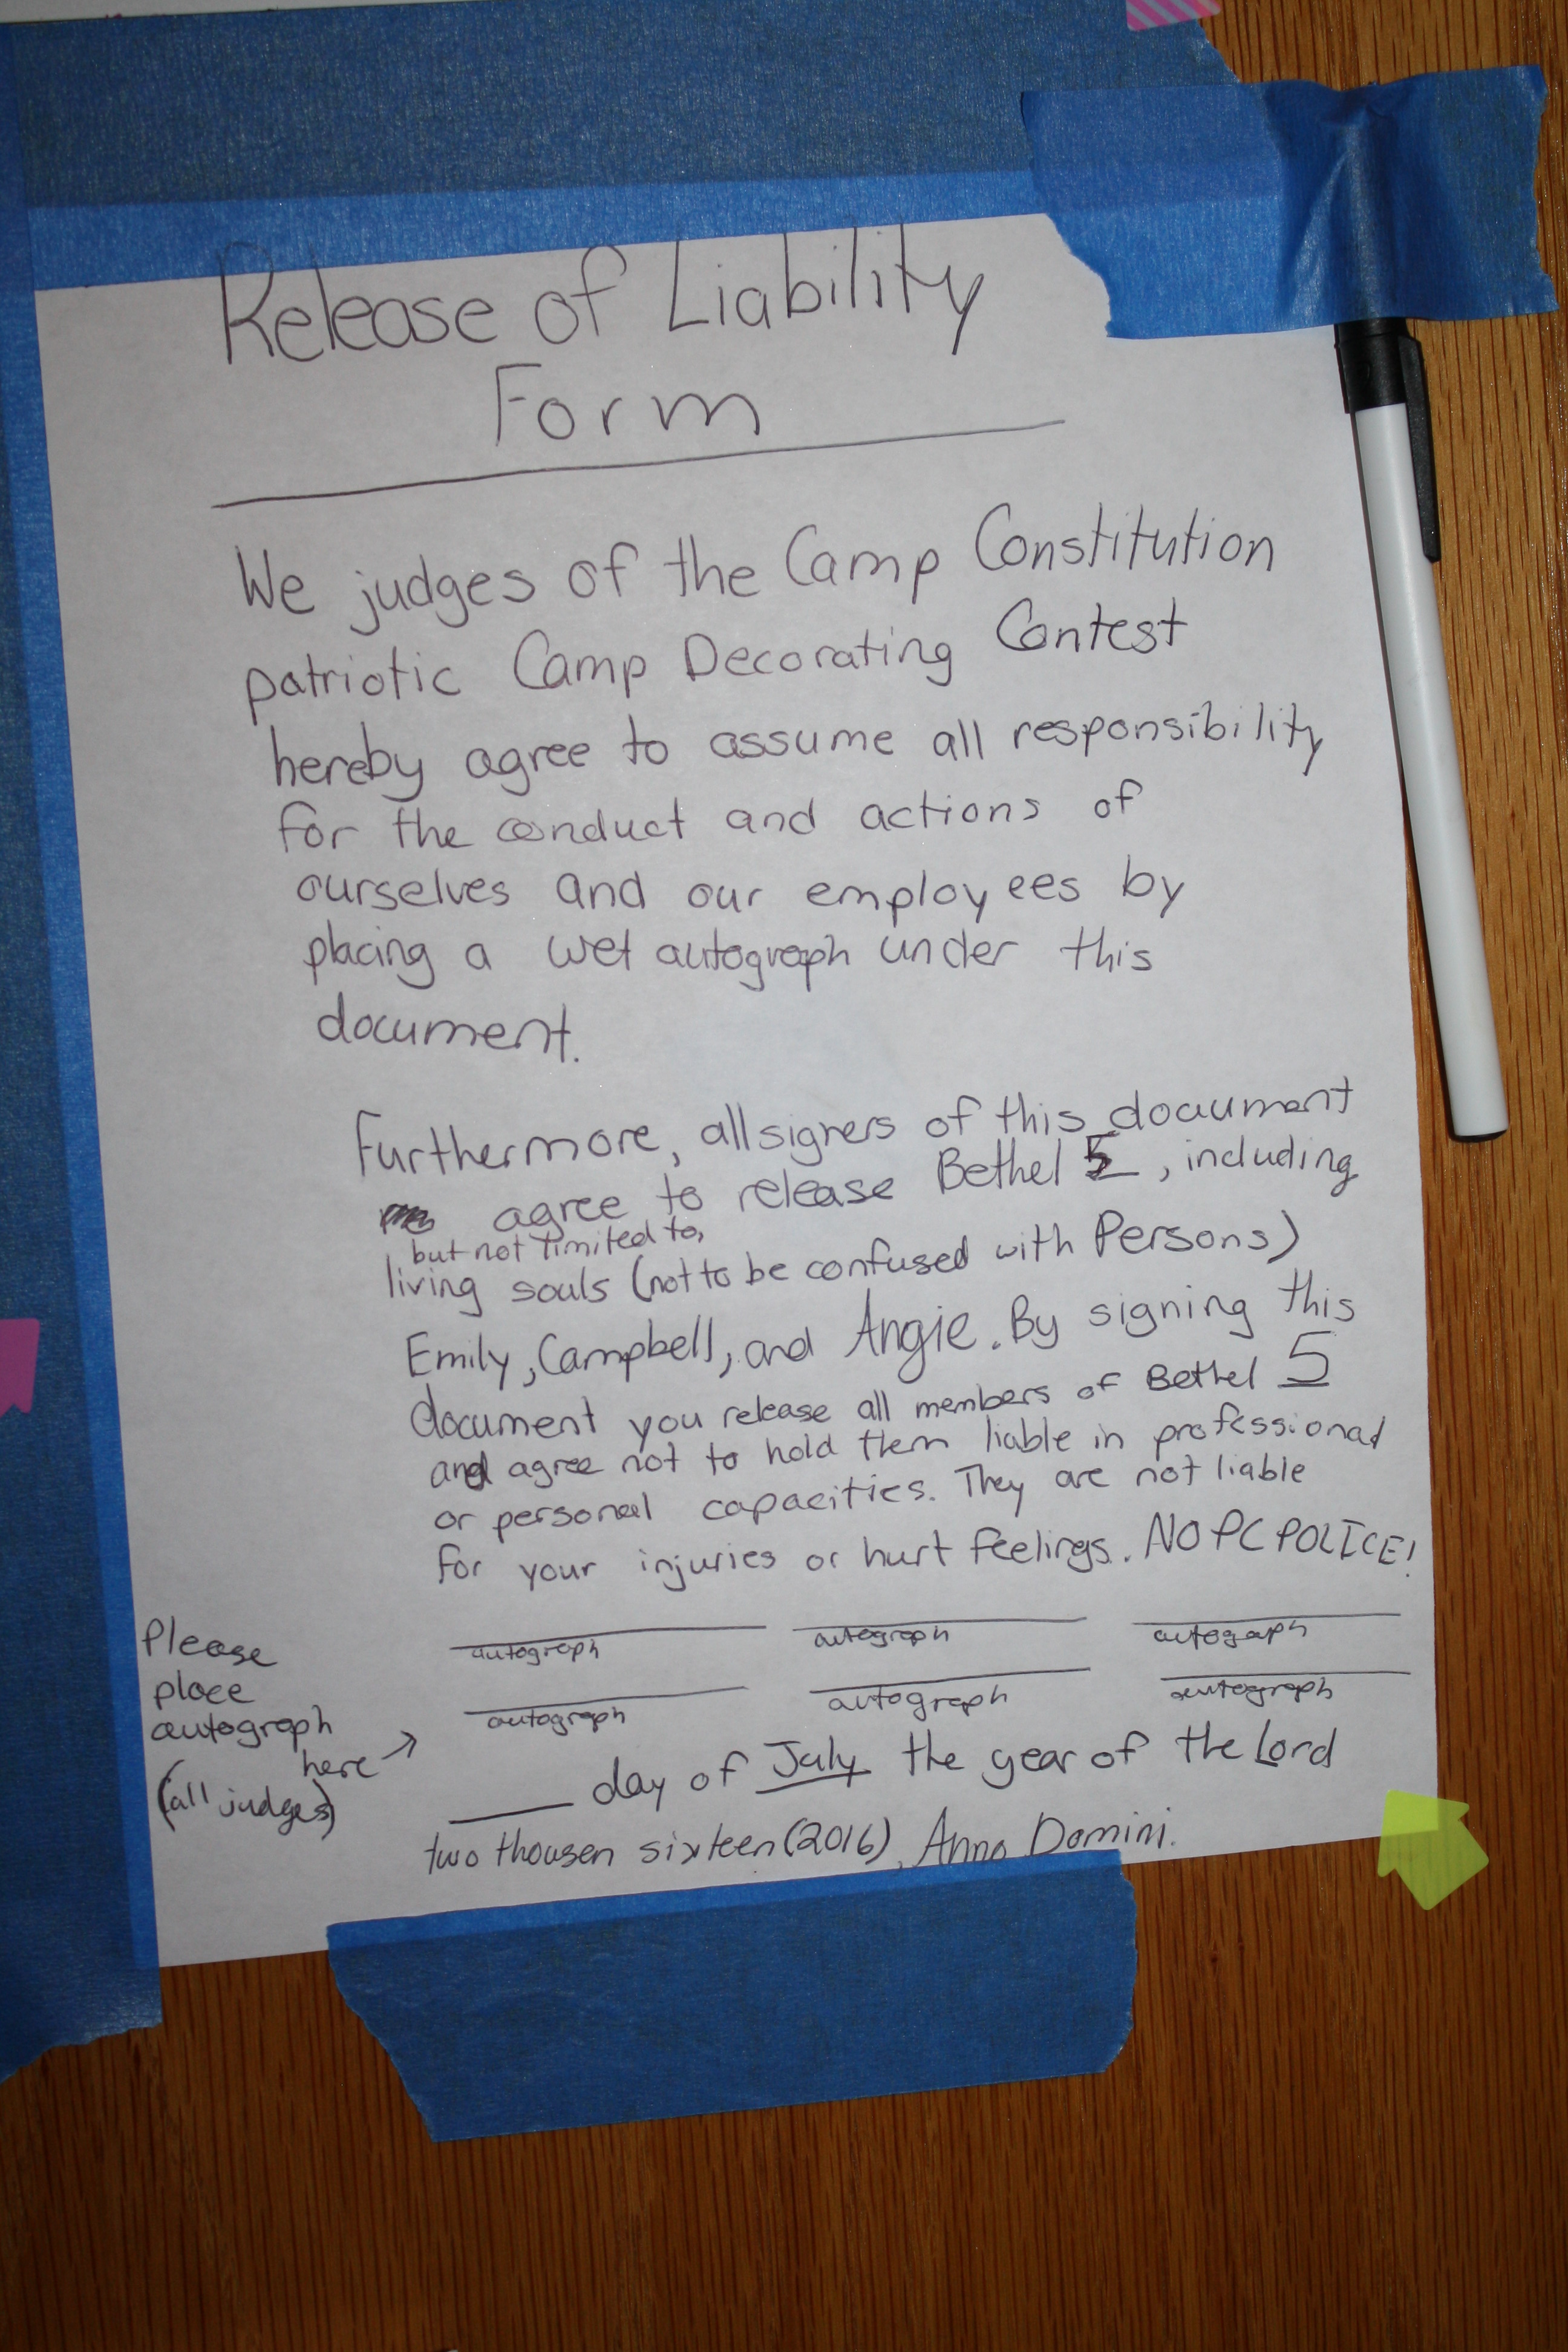 Release of Liability
Form
We judges of the Camp Constitution
patriotic Camp Decorating Contest
hereby agree to assume all responsibility
for the conduct and actions of
ourselves and our employees by
placing a wet autograph under this
document.
Furthermore, all signers of this document
agree to release Bethel 5, including
but not limited to,
living souls (not to be confused with Persons)
Emily, Campbell, and Angie. By signing this
document you release all members of Bethel 5
and agree not to hold them liable in professional
or personal capacities. They are not liable
for your injuries or hurt feelings. NO PC POLICE!
autograph autograph autograph
autograph autograph autograph
Please
place
autograph
here →
(all judges)
____ day of July the year of the Lord
two thousen sixteen (2016), Anno Domini.